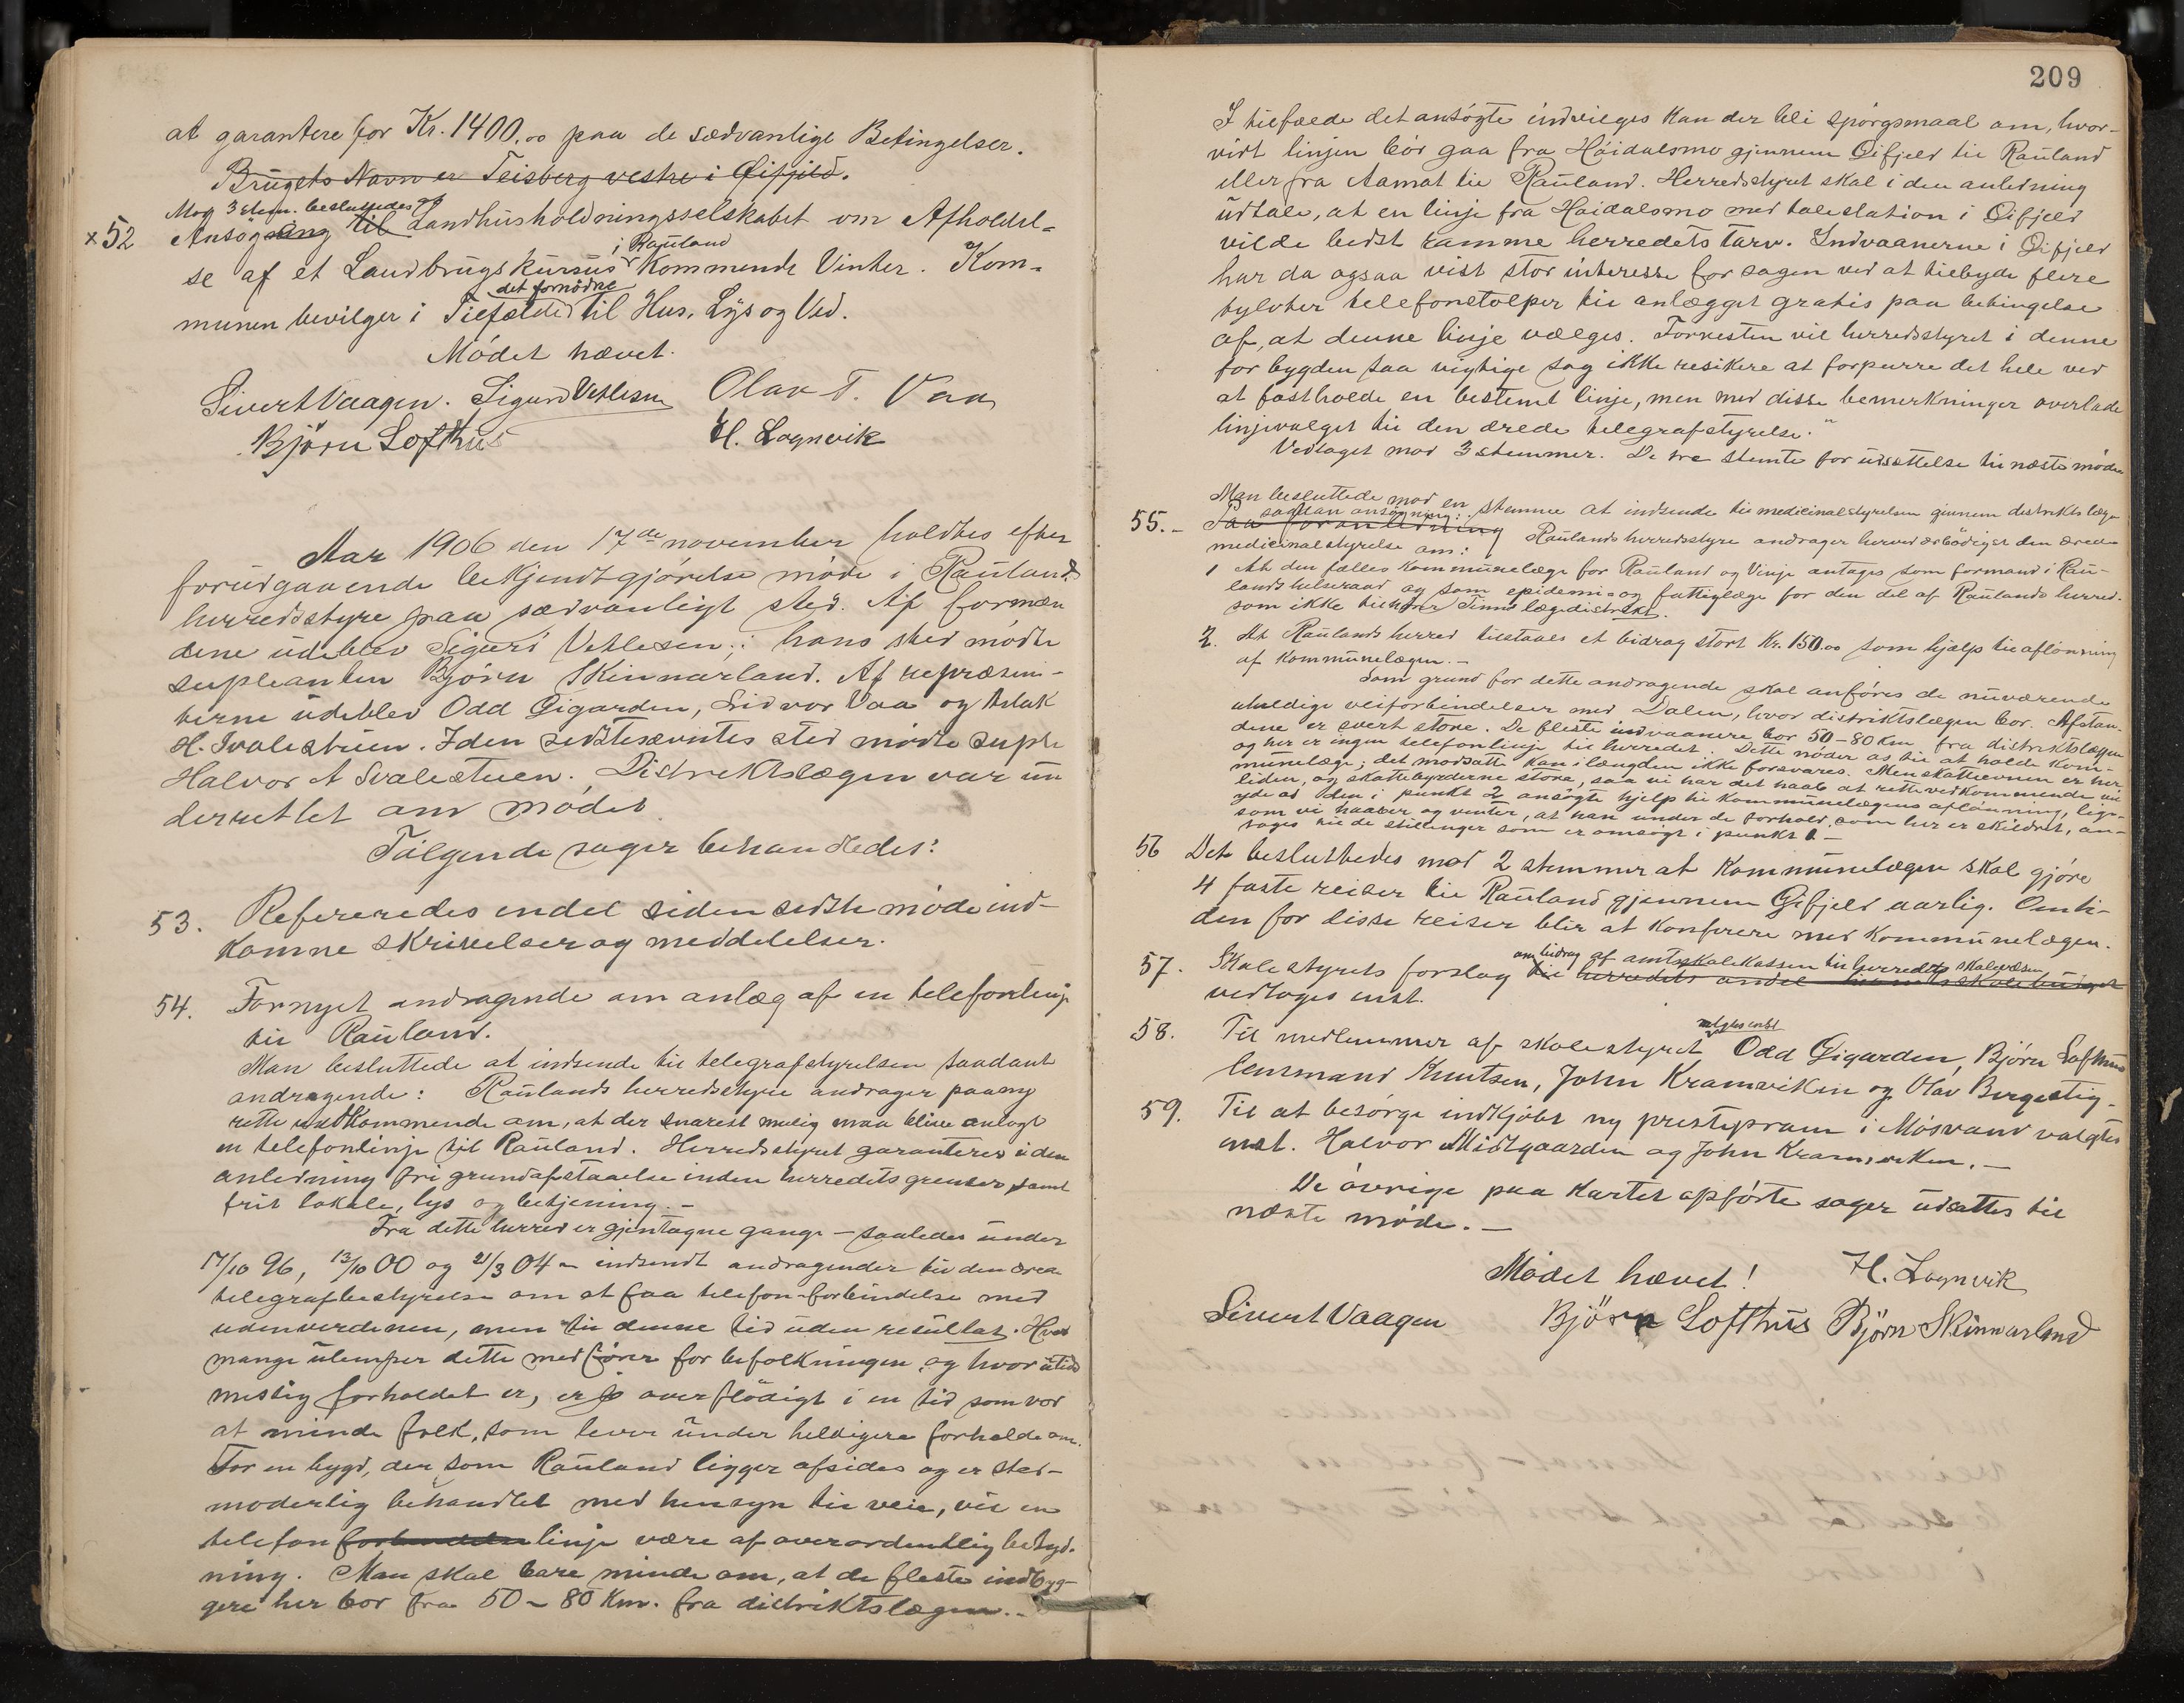 at garantere for Kr. 1400.00 paa de sædvanlige Betingelser.
Brugets Navn er Teisberg vestre i Øifjeld.
Mod 3 stem. besluttedes
x52 Ansøgning til Landhusholdningsselskabet om Afholdel-
se af et Landbrugskursus i Rauland Kommende Vinter. Kom-
munen bevilger i Tilfælde det fornødne til Hus, Lys og Ved.
Mødet hævet.
Sivert Vaagen. Sigurd Vetlesen Olav T. Vaa
Bjørn Lofthus H. Lognvik
Aar 1906 den 17de november holdtes efter
forudgaaende bekjendtgjørelse møde i Raulands
herredsstyre paa sædvanligt sted. Af formæn
dene udeblev Sigurd Vetlesen; hans sted mødte
supleanten Bjørn Skinnarland. Af repræsen-
terne udeblev Odd Øigarden, Sidvor Vaa og Aslak
H. Svalestuen. I den sidstnævntes sted mødte suple
Halvor A Svalestuen. Distriktslægen var un
derrettet om mødet
Følgende sager behandledes:
53. Refereredes endel siden sidste møde ind-
komne skrivelser og meddelelser.
54. Fornyet andragende om anlæg af en telefonlinje
til Rauland.
Man besluttede at indsende til telegrafstyrelsen saadant
andragende: Raulands herredsstyre andrager paany
rette vedkommende om, at der snarest mulig maa blive anlagt
en telefonlinje til Rauland. Herredsstyret garanterer i den
anledning fri grundafstaaelse inden herredets grenser, samt
frit lokale, lys og betjening. –
Fra dette herred er gjentagne gange – saaledes under
17/10 96, 13/10 00 og 21/3 04 – indsendt andragender til den ærede
telegrafbestyrelse om at faa telefon-forbindelse med
udenverdenen, men til denne tid uden resultat. Hvor
mange ulemper dette medfører for befolkningen og hvor utids
messig forholdet er, er overflødigt i en tid som vor
at minde folk, som lever under heldigere forholde om.
For en bygd, der som Rauland ligger afsides og er sted-
moderlig behandlet med hensyn til veie, vil en
telefon forbindelse linje være af overordentlig betyd-
ning. Man skal bare minde om, at de fleste indbyg-
gere her bor fra 50 – 80 Km. fra distriktslægen. –
209
I tilfælde det ansøgte indvilges kan der bli spørgsmaal om, hvor-
vidt linjen bør gaa fra Høidalsmo gjennem Øifjeld til Rauland
eller fra Aamot til Rauland. Herredsstyret skal i den anledning
udtale, at en linje fra Høidalsmo med talestation i Øifjeld
vilde bedst ramme herredets tarv. Indvaanerne i Øifjeld
har da ogsaa vist stor interesse for sagen ved at tilbyde flere
tylvter telefonstolper til anlægget gratis paa betingelse
af, at denne linje vælges. Forresten vil herredsstyret i denne
for bygden saa vigtige sag ikke resikere at forpurre det hele ved
at fastholde en bestemt linje, men med disse bemerkninger overlade
linjevalget til den ærede telegrafstyrelse."
Vedtaget mod 3 stemmer. De tre stemte for udsættelse til næste møde
Man besluttede mod en stemme at indsende til medicinalstyrelsen gjennem distriktslæge
saadan ansøgning:
55. – Paa foranledning Raulands herredsstyre andrager herved ærbødigst den ærede
medicinalstyrelse om:
1 At den fælles kommunelæge for Rauland og Vinje antages som formand i Rau-
lands helseraad og som epidemi- og fattiglæge for den del af Raulands herred.
som ikke tilhører Tinns lægedistrikt.
2. At Raulands herred tilstaaes et bidrag stort Kr. 150.00 som hjælp til aflønning
af kommunelægen. –
Som grund for dette andragende skal anføres de nuværende
uheldige veiforbindelser med Dalen, hvor distriktslægen bor. Afstan-
dene er svert store. De fleste indvaanere bor 50 – 80 Km fra distriktslægen
og her er ingen telefonlinje til herredet. Dette nøder os til at holde kom-
munelæge; det modsatte kan i længden ikke forsvares. Men skatteevnen er her
liden, og skattebyrderne store, saa vi har det haab at rette vedkommende vil
yde os den i punkt 2 ansøgte hjelp til kommunelægens aflønning, lige-
som vi haaber og venter, at han under de forhold, som her er skildret, an-
tages til de stillinger som er omsøgt i punkt 1. –
56 Det besluttedes mod 2 stemmer at kommunelægen skal gjøre
4 faste reiser til Rauland gjennem Øifjeld aarlig. Om ti-
den for disse reiser blir at konferere med kommunelægen.
57. Skolestyrets forslag om bidrag af amtsskolekassen til herredets skolevæsen
til herredets andel
vedtoges enst.
58. Til medlemmer af skolestyret valgtes enst Odd Øigarden, Bjørn Lofthus
lensmand Knutsen, John Kramviken og Olav Bergestig.
59. Til at besørge indkjøbt ny prestepram i Møsvand valgtes
enst. Halvor Midtgaarden og John Kramviken. –
De øvrige paa kartet opførte sager udsattes til
næste møde. –
Mødet hævet! H. Lognvik
Sivert Vaagen Bjørn Lofthus Bjørn Skinnarland